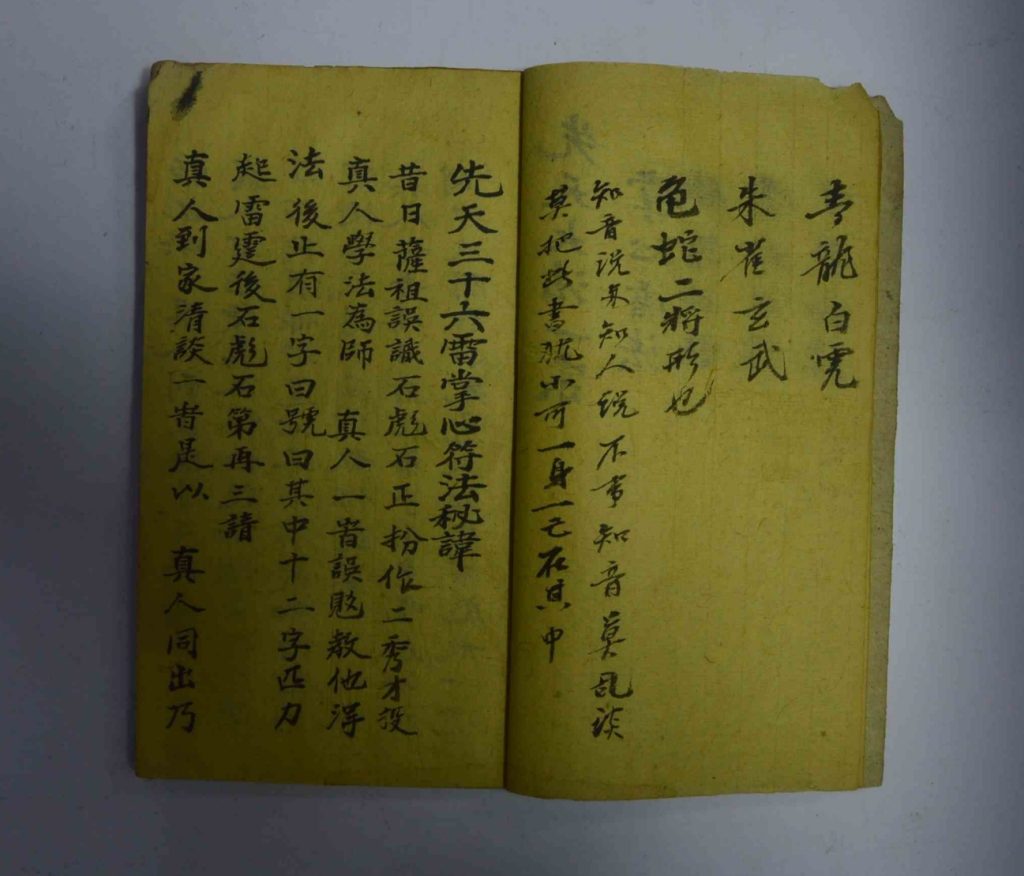 青龍白虎
朱雀玄武
龟蛇二將形也
知音说来知人説不啇知音莫乱谈
莫把此書犹小可一身一己在其中
先天三十六雷掌心符法秘諱
昔日薩祖誤識石彪石正扮作二秀才投
真人學法為師 真人一昔誤敗教他得
法後止有一字曰號曰其中十二字匹力
起雷霆後石彪石第再三請
真人到家清談一昔是以 真人同出乃